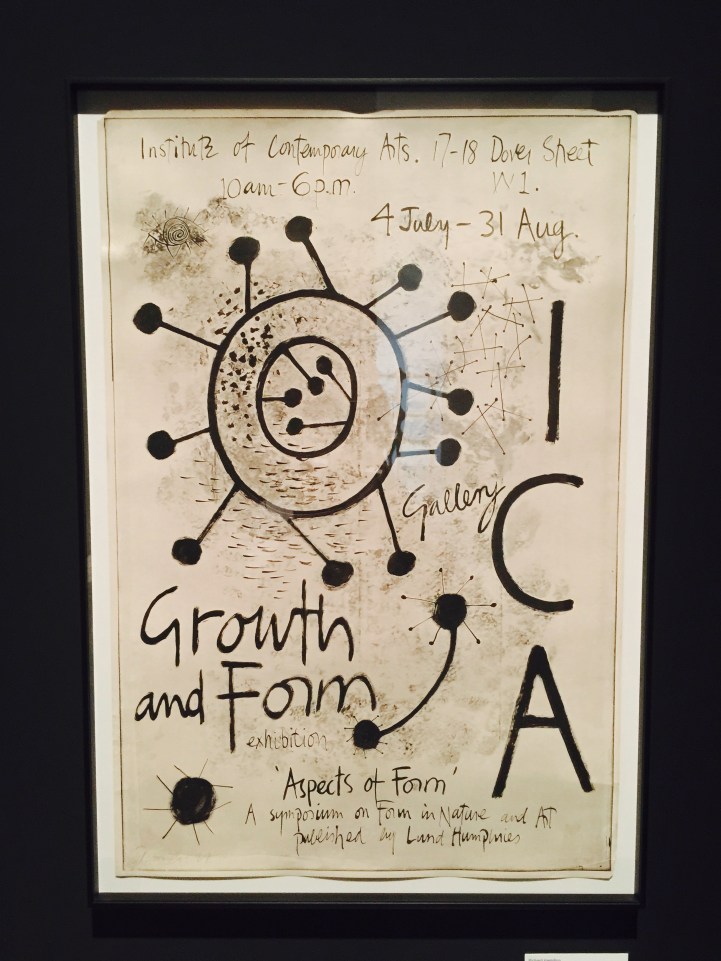 Institute of Contemporary Arts. 17-18 Dover Street
10am-6p.m. W1.
4 July - 31 Aug.
I
C
A
Gallery
Growth
and Form
exhibition
'Aspects of Form'
A symposium on Form in Nature and Art
published by Lund Humphries